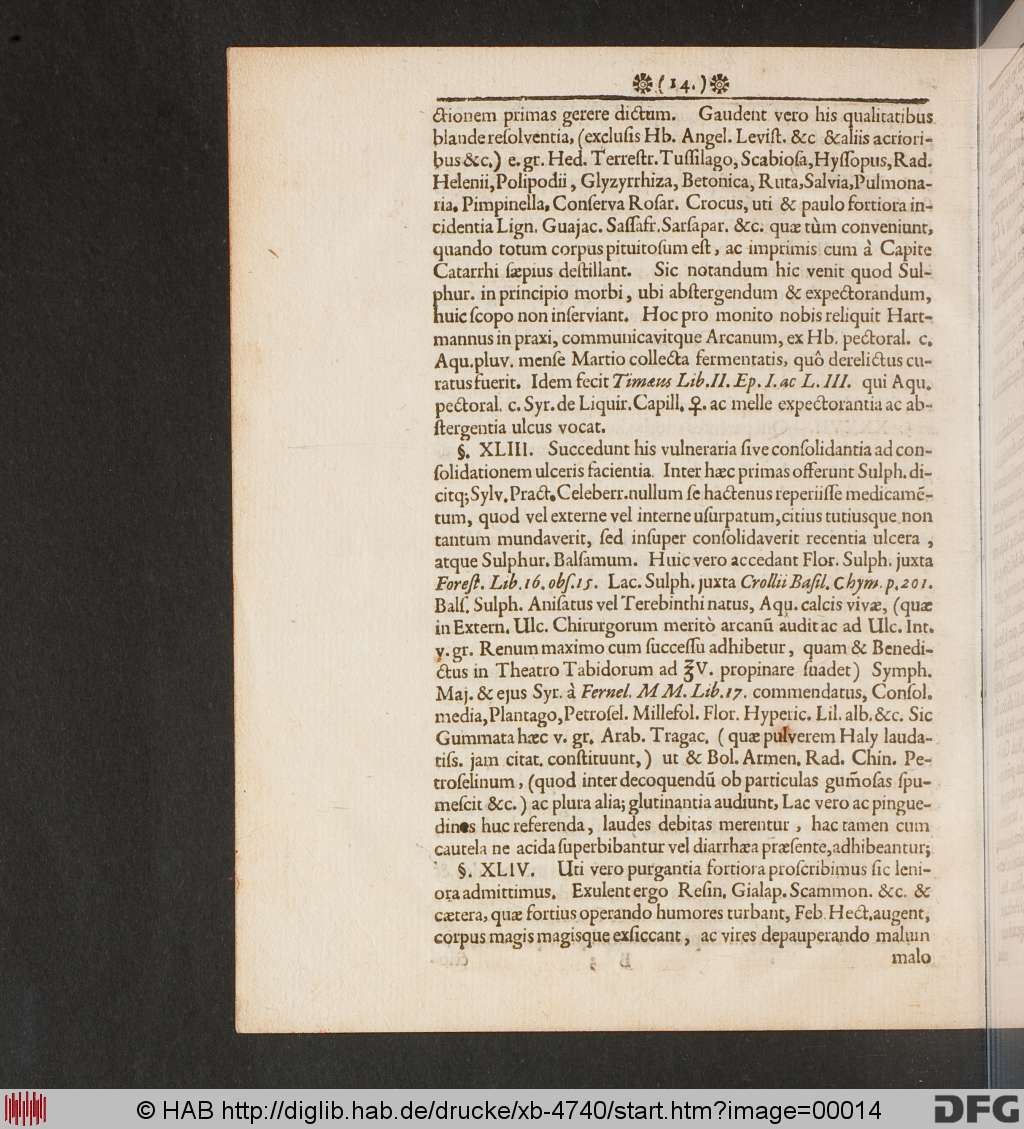 ❁(14.)❁
ctionem primas gerere dictum. Gaudent vero his qualitatibus
blande reſolventia, (excluſis Hb. Angel. Leviſt. &c &aliis acriori-
bus &c.) e. gr. Hed. Terreſtr. Tuſſilago, Scabioſa, Hyſſopus, Rad.
Helenii, Polipodii, Glyzyrrhiza, Betonica, Ruta, Salvia, Pulmona-
ria, Pimpinella, Conſerva Roſar. Crocus, uti & paulo fortiora in-
cidentia Lign. Guajac. Saſſafr. Sarſapar. &c. quæ tùm conveniunt,
quando totum corpus pituitoſum eſt, ac imprimis cum à Capite
Catarrhi ſæpius deſtillant. Sic notandum hic venit quod Sul-
phur. in principio morbi, ubi abſtergendum & expectorandum,
huic ſcopo non inſerviant. Hoc pro monito nobis reliquit Hart-
mannus in praxi, communicavitque Arcanum, ex Hb. pectoral. c.
Aqu. pluv. menſe Martio collecta fermentatis, quô derelictus cu-
ratus fuerit. Idem fecit Timæus Lib. II. Ep. I. ac L. III. qui Aqu.
pectoral. c. Syr. de Liquir. Capill. ♀. ac melle expectorantia ac ab-
ſtergentia ulcus vocat.
§. XLIII. Succedunt his vulneraria ſive conſolidantia ad con-
ſolidationem ulceris facientia. Inter hæc primas offerunt Sulph. di-
citq; Sylv. Pract. Celeberr. nullum ſe hactenus reperiiſſe medicamē-
tum, quod vel externe vel interne uſurpatum, citius tutiusque non
tantum mundaverit, ſed inſuper conſolidaverit recentia ulcera,
atque Sulphur. Balſamum. Huic vero accedant Flor. Sulph. juxta
Foreſt. Lib. 16. obſ. 15. Lac. Sulph. juxta Crollii Baſil. Chym. p. 201.
Balſ. Sulph. Aniſatus vel Terebinthinatus, Aqu. calcis vivæ, (quæ
in Extern. Ulc. Chirurgorum meritò arcanū audit ac ad Ulc. Int.
v. gr. Renum maximo cum ſucceſſu adhibetur, quam & Benedi-
ctus in Theatro Tabidorum ad ℥V. propinare ſuadet) Symph.
Maj. & ejus Syr. à Fernel. M M. Lib. 17. commendatus, Conſol.
media, Plantago, Petroſel. Millefol. Flor. Hyperic. Lil. alb. &c. Sic
Gummata hæc v. gr. Arab. Tragac. (quæ pulverem Haly lauda-
tiſs. jam citat. conſtituunt,) ut & Bol. Armen. Rad. Chin. Pe-
troſelinum, (quod inter decoquendū ob particulas gum̃oſas ſpu-
meſcit &c.) ac plura alia; glutinantia audiunt, Lac vero ac pingue-
dines huc referenda, laudes debitas merentur, hac tamen cum
cautela ne acida ſuperbibantur vel diarrhæa præſente, adhibeantur;
§. XLIV. Uti vero purgantia fortiora proſcribimus ſic leni-
ora admittimus. Exulent ergo Reſin. Gialap. Scammon. &c. &
cætera, quæ fortius operando humores turbant, Feb. Hect. augent,
corpus magis magisque exſiccant, ac vires depauperando malum
malo
© HAB http://diglib.hab.de/drucke/xb-4740/start.htm?image=00014
DFG